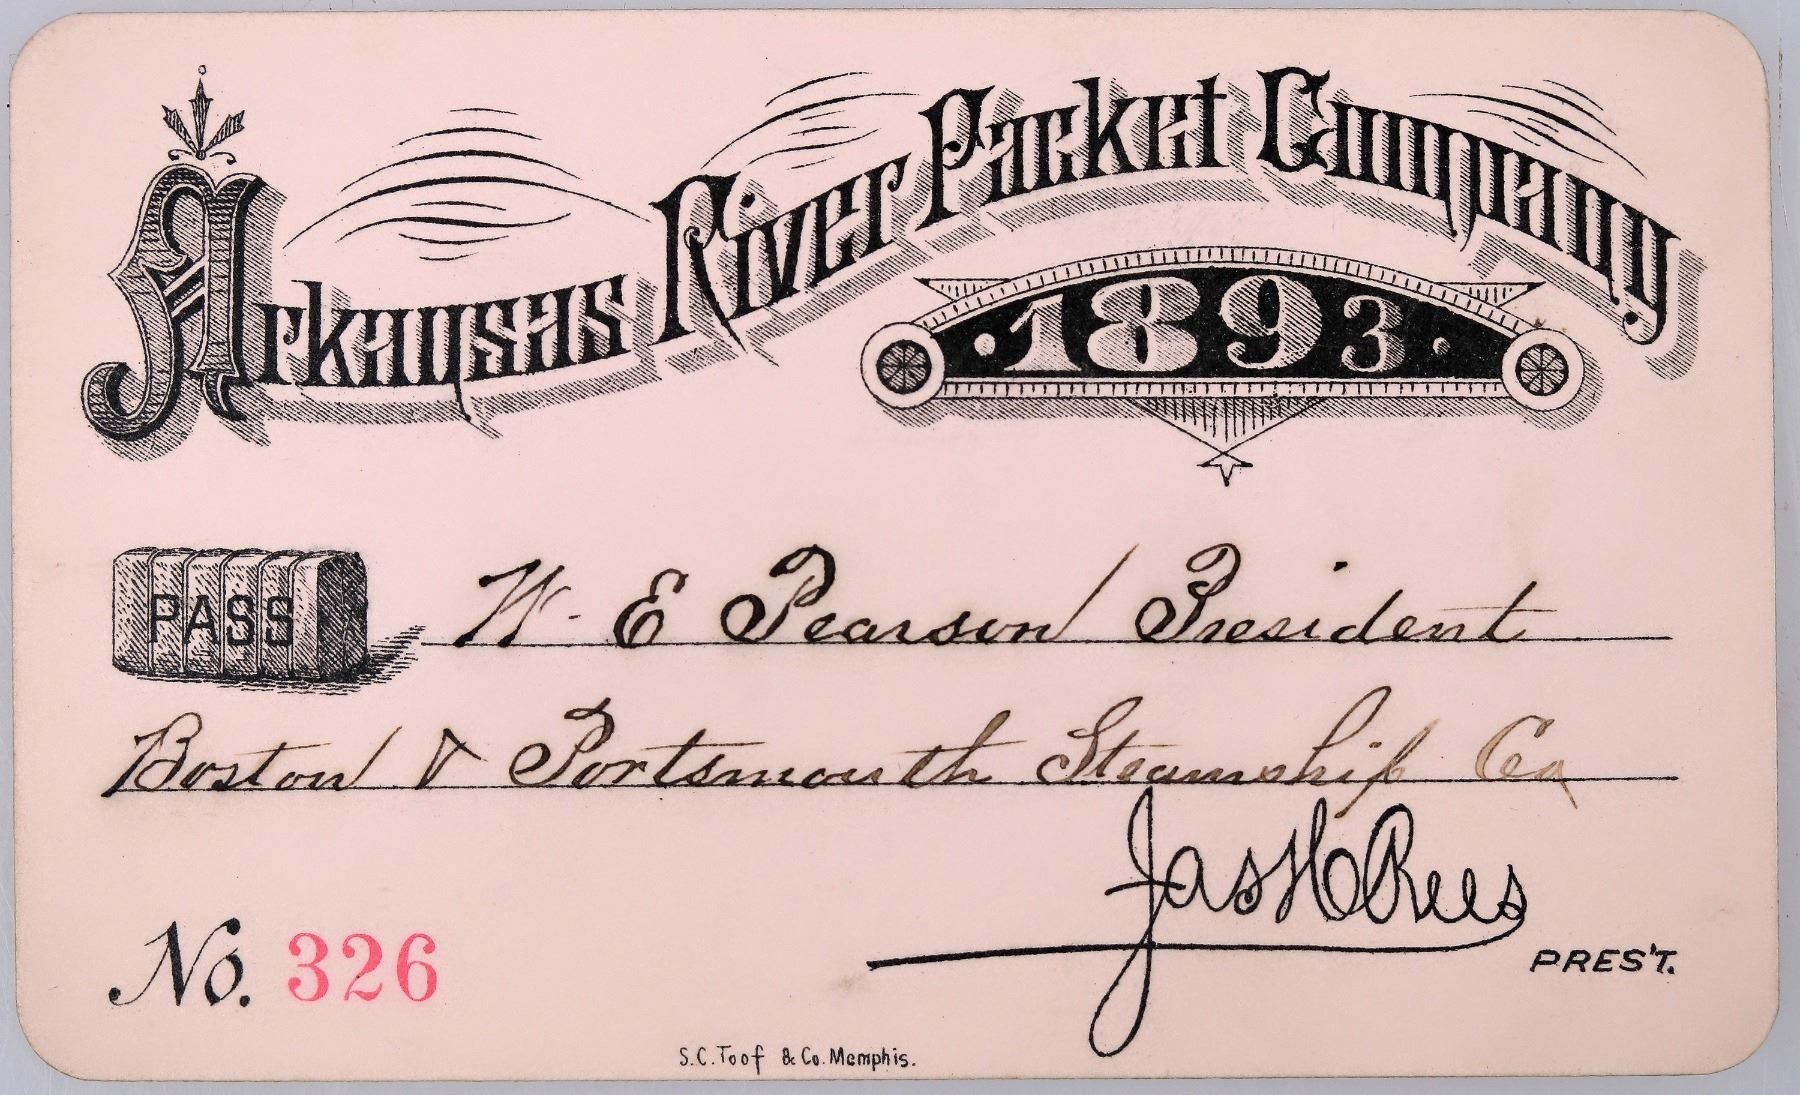 Arkansas River Packet Company
1893
PASS W. E Pearson President
Boston & Portsmouth Steamship Co
Jas H Rees
PRES'T.
No. 326
S.C. Toof & Co. Memphis.